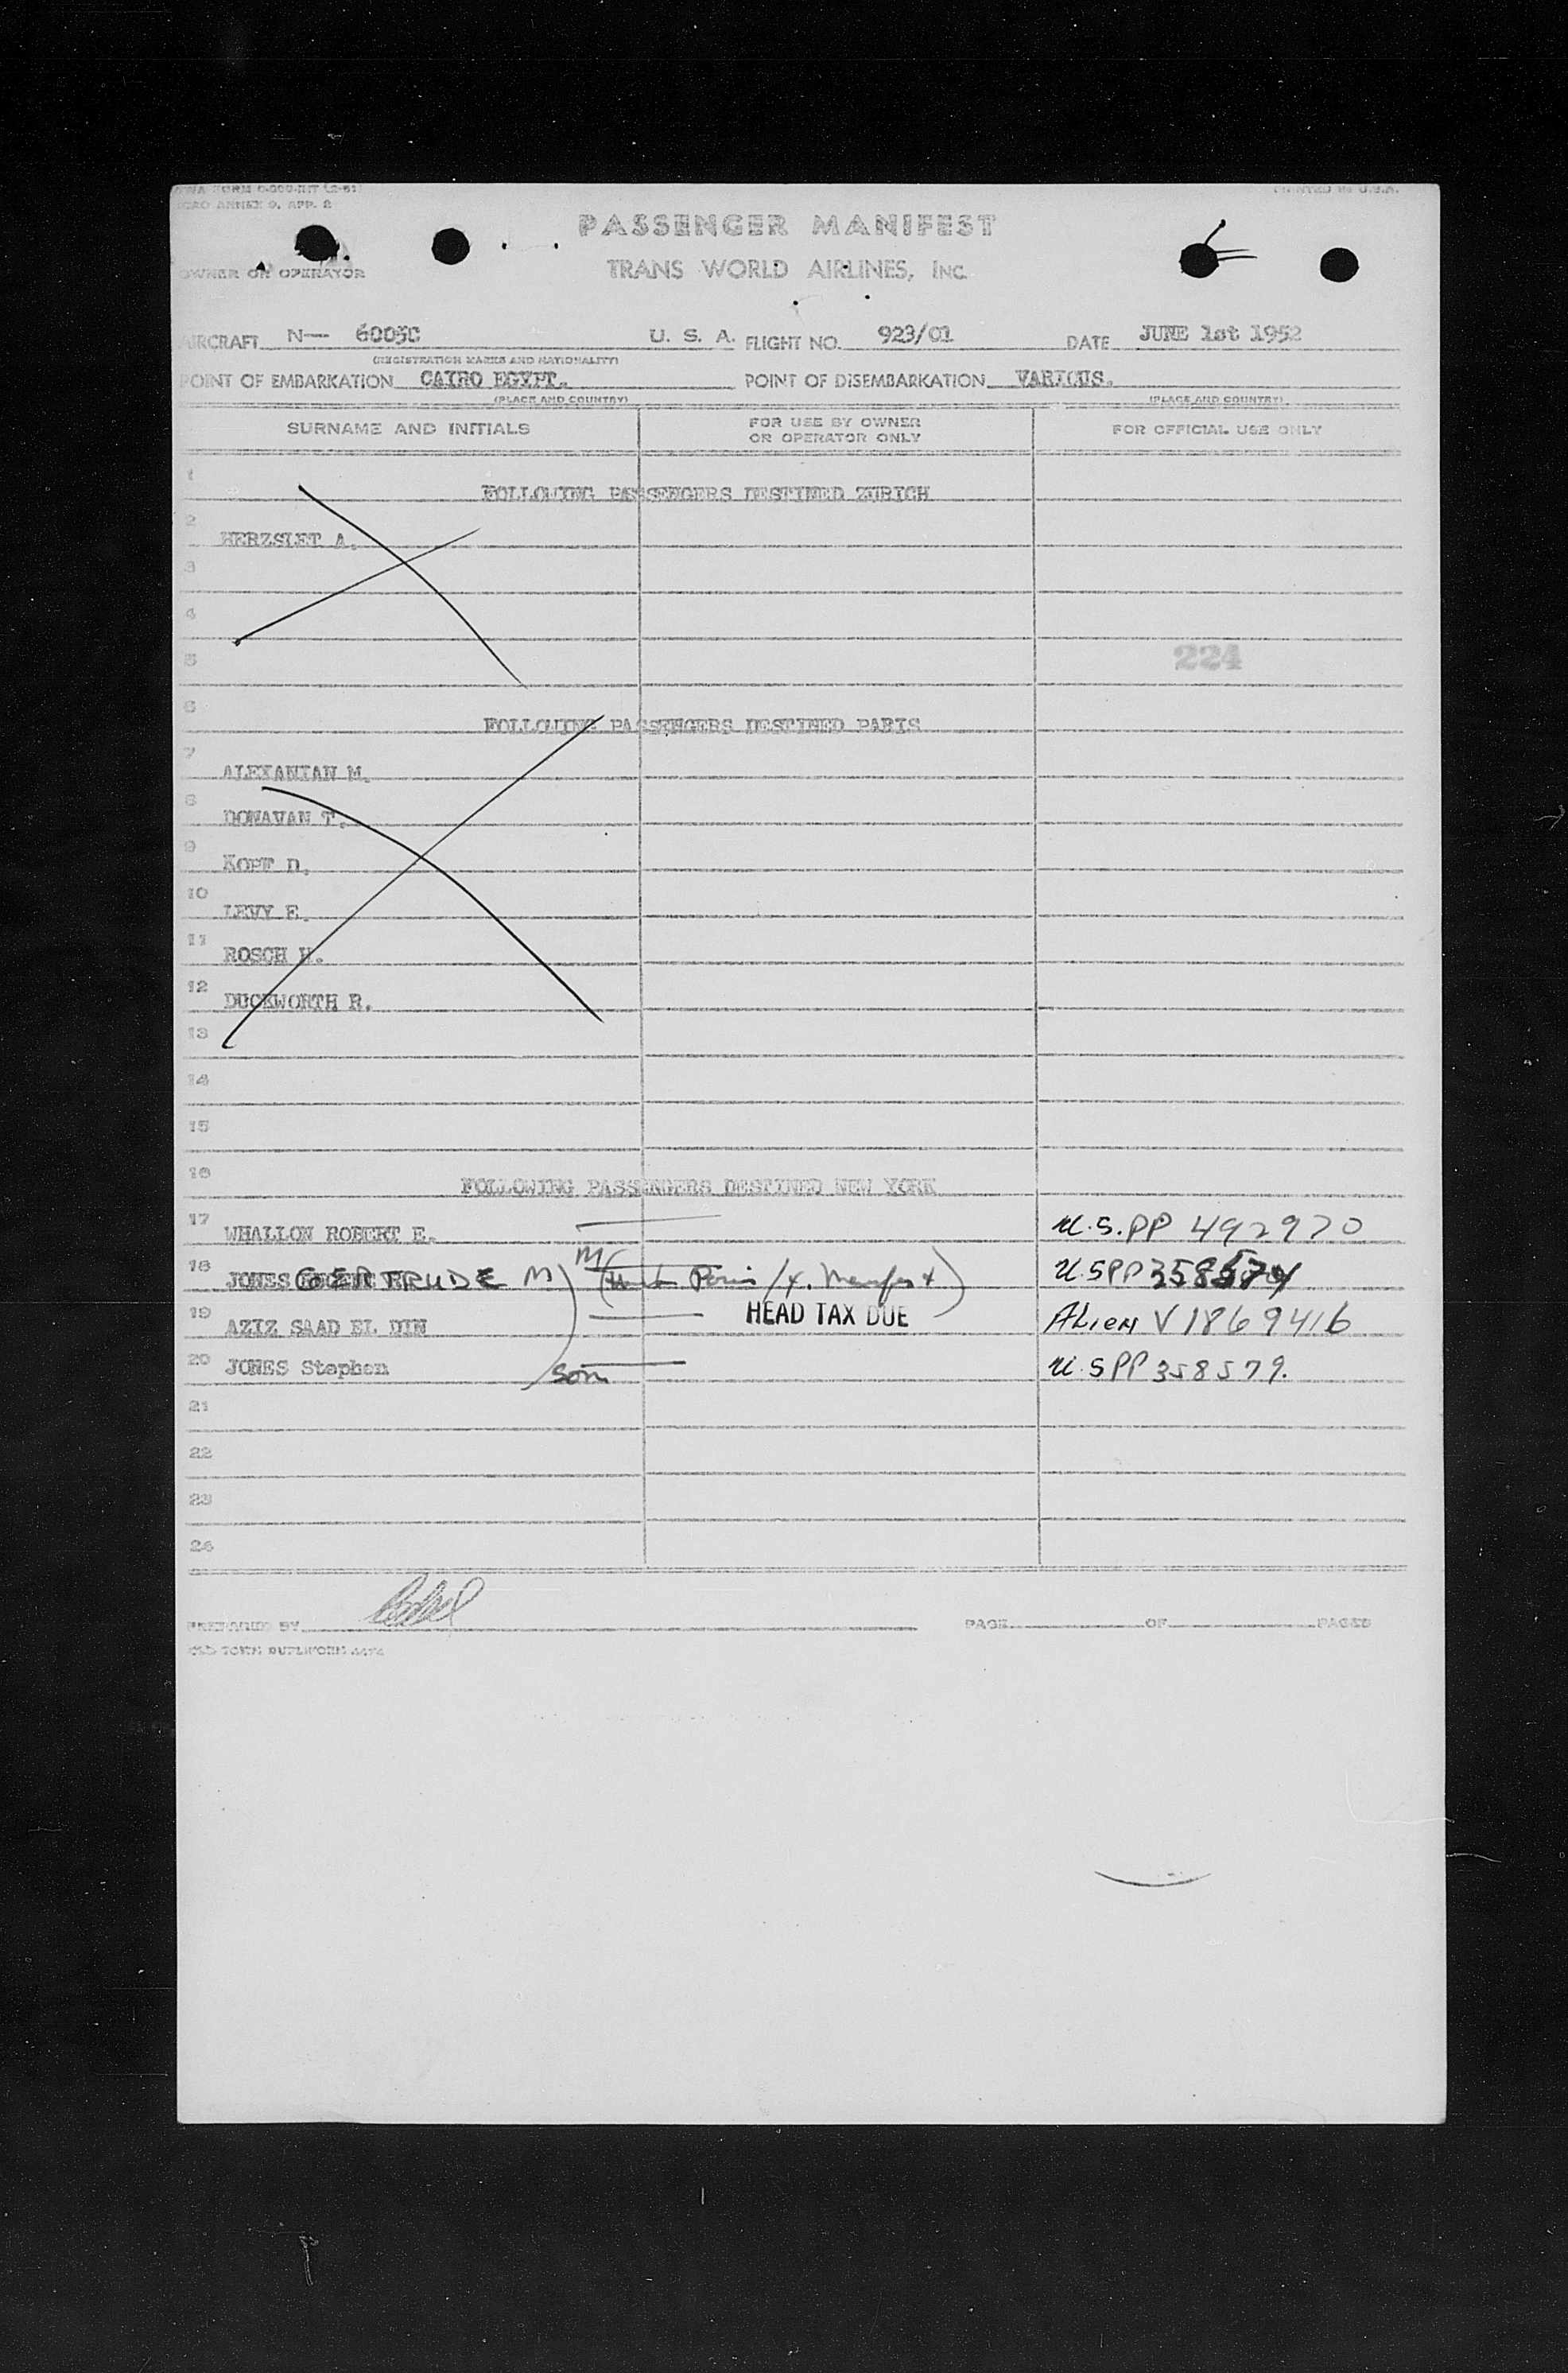 TWA FORM
ICAO ANNEX 9, APP. 2
PRINTED IN U.S.A.
PASSENGER MANIFEST
OWNER OR OPERATOR
TRANS WORLD AIRLINES, INC.
AIRCRAFT N— 6005C U. S. A. FLIGHT NO. 923/01 DATE JUNE 1st 1952
(REGISTRATION MARKS AND NATIONALITY)
POINT OF EMBARKATION CAIRO EGYPT. POINT OF DISEMBARKATION VARIOUS.
(PLACE AND COUNTRY) (PLACE AND COUNTRY)
SURNAME AND INITIALS FOR USE BY OWNER OR OPERATOR ONLY FOR OFFICIAL USE ONLY
1 FOLLOWING PASSENGERS DESTINED ZURICH
2 HERZSLET A.
3
4
5 224
6 FOLLOWING PASSENGERS DESTINED PARIS
7 ALEXANIAN M.
8 DONAVAN T.
9 KOPT D.
10 LEVY E.
11 ROSCH H.
12 DUCKWORTH R.
13
14
15
16 FOLLOWING PASSENGERS DESTINED NEW YORK
17 WHALLON ROBERT E. U.S.PP 492970
18 JONES GERTRUDE M M Paris Manifest U.SPP
19 AZIZ SAAD EL DIN HEAD TAX DUE ALIEN V 1869416
20 JONES Stephen Son U.SPP 358579.
21
22
23
24
PREPARED BY PAGE OF PAGES
OLD TOWN DUPLIFORM